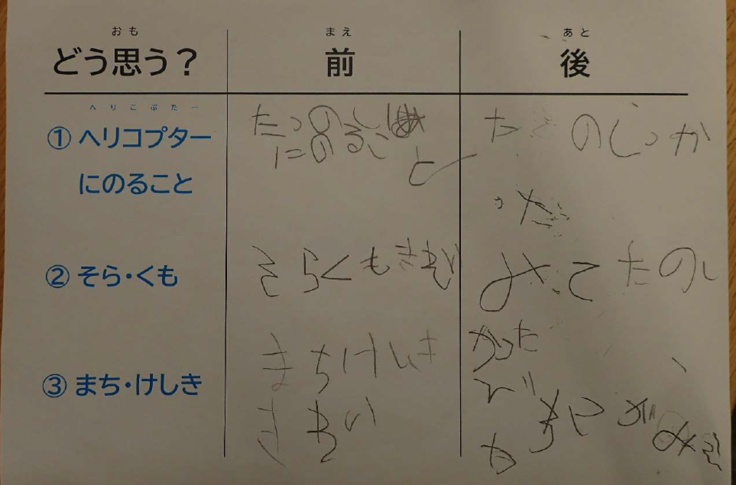 おも
まえ
あと
どう思う？
前
後
へりこぷたー
① ヘリコプター
にのること
たっのし
にのるこ
と
た のしっか
った
② そら・くも
そらくもきれい
みてたのし
かった
③ まち・けしき
まちけしき
きれい